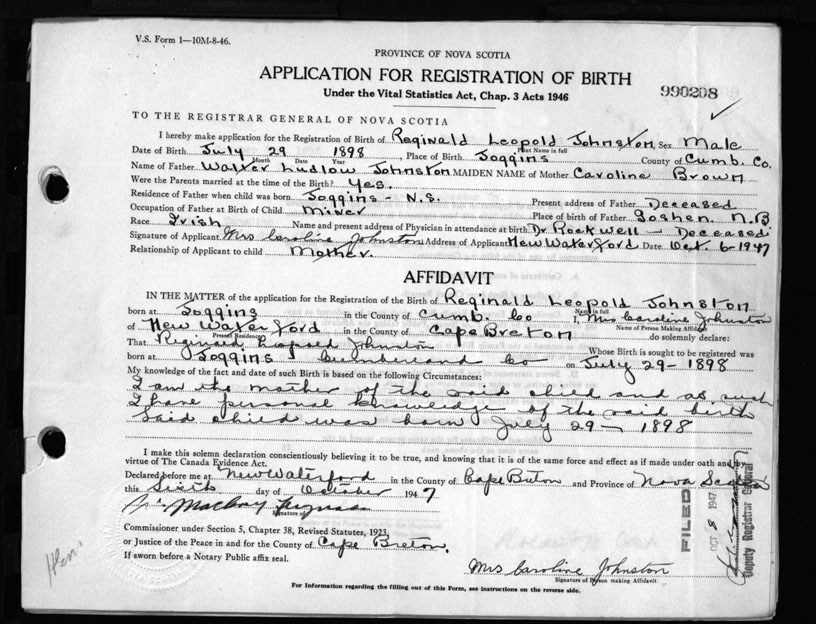 V.S. Form 1—10M-8-46.
PROVINCE OF NOVA SCOTIA
APPLICATION FOR REGISTRATION OF BIRTH
990208
Under the Vital Statistics Act, Chap. 3 Acts 1946
TO THE REGISTRAR GENERAL OF NOVA SCOTIA
I hereby make application for the Registration of Birth of Reginald Leopold Johnston, Sex Male
Print Name in full
Date of Birth July 29 1898, Place of Birth Joggins County of Cumb. Co.
Month Date Year
Name of Father Walter Ludlow Johnston MAIDEN NAME of Mother Caroline Brown
Were the Parents married at the time of the Birth? Yes.
Residence of Father when child was born Joggins - N.S. Present address of Father Deceased
Occupation of Father at Birth of Child Miner Place of birth of Father Goshen. N.B
Race Irish Name and present address of Physician in attendance at birth Dr Rockwell - Deceased
Signature of Applicant Mrs Caroline Johnston Address of Applicant New Waterford Date Oct. 6-1947
Relationship of Applicant to child Mother.
AFFIDAVIT
IN THE MATTER of the application for the Registration of the Birth of Reginald Leopold Johnston
Name in full
born at Joggins in the County of Cumb. Co I, Mrs Caroline Johnston
Name of Person Making Affidavit
of New Waterford in the County of Cape Breton do solemnly declare:
Present Residence
That Reginald Johnston Whose Birth is sought to be registered was
born at Joggins Cumberland Co on July 29-1898
My knowledge of the fact and date of such Birth is based on the following Circumstances:
I am the mother of the said child and as such
I have personal knowledge of the said birth
Said child was born July 29 - 1898
I make this solemn declaration conscientiously believing it to be true, and knowing that it is of the same force and effect as if made under oath and by
virtue of The Canada Evidence Act.
Declared before me at New Waterford in the County of Cape Breton and Province of Nova Scotia
this Sixth day of October 1947
Signature of
Commissioner under Section 5, Chapter 38, Revised Statutes, 1923,
or Justice of the Peace in and for the County of Cape Breton.
If sworn before a Notary Public affix seal.
Mrs Caroline Johnston
Signature of Person making Affidavit
For Information regarding the filling out of this Form, see instructions on the reverse side.
FILED
OCT 8 1947
Deputy Registrar General